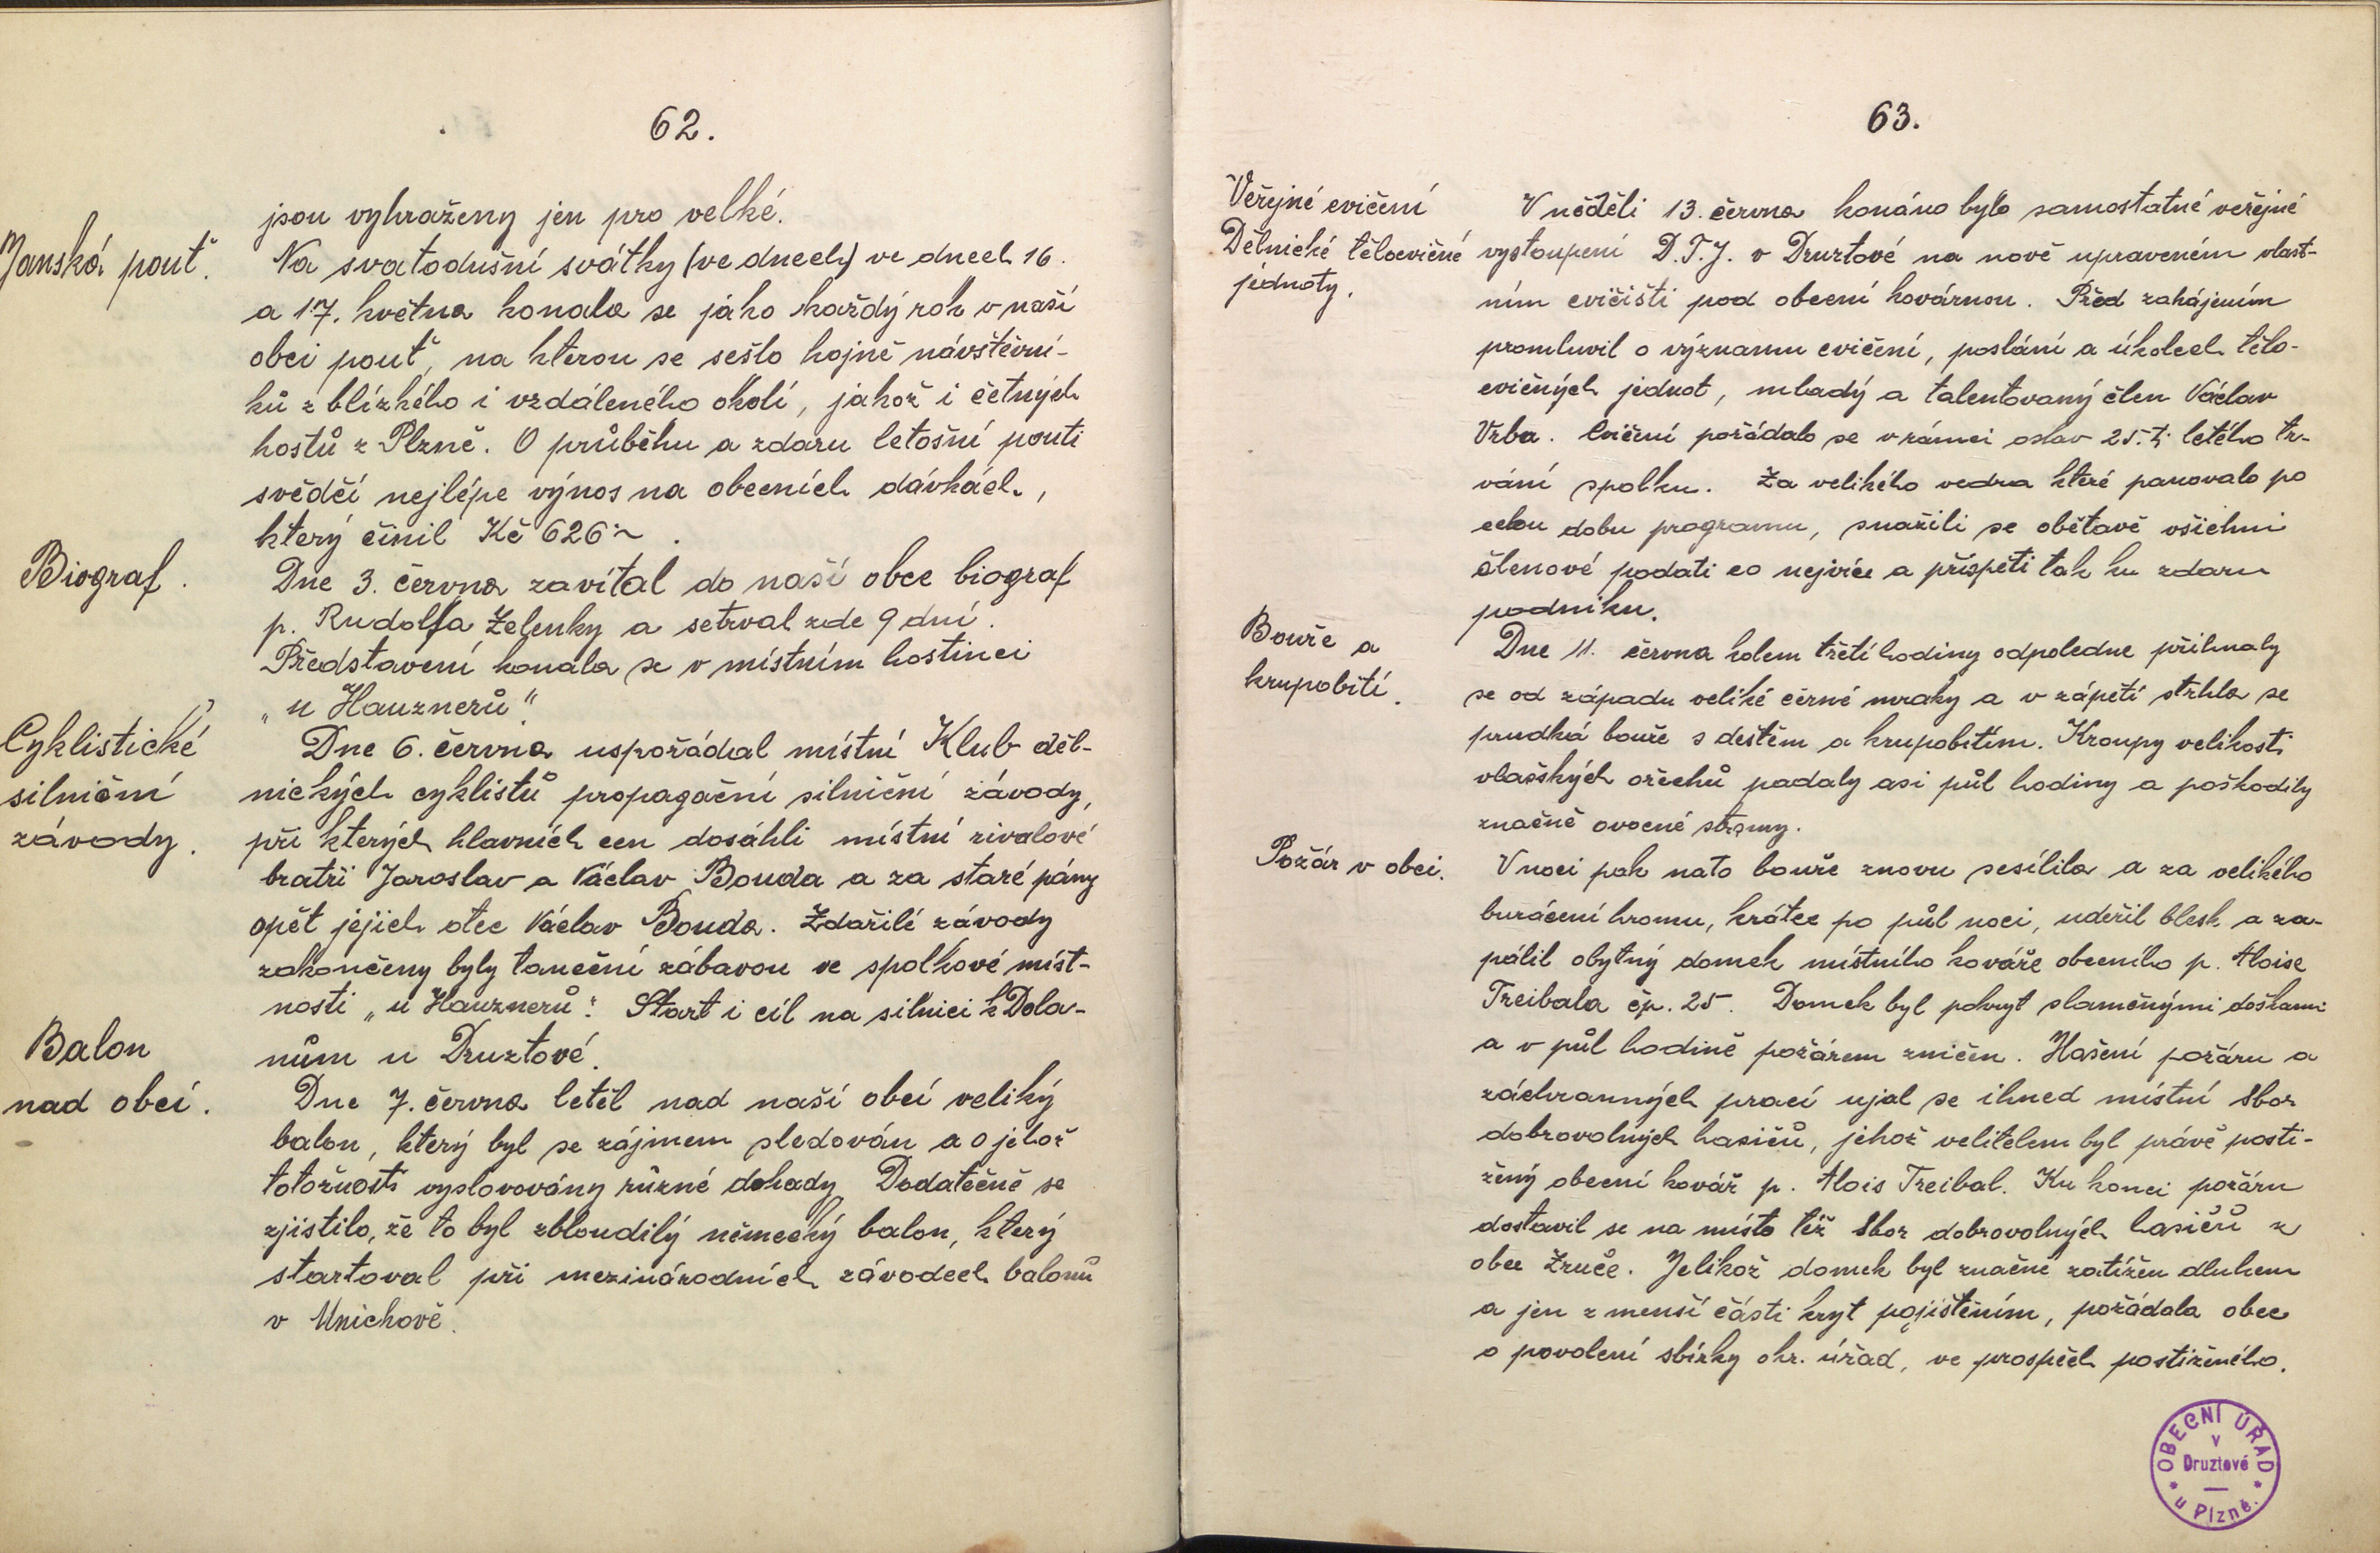 62.
jsou vyhraženy jen pro velké.
Janská pouť.
Na svatodušní svátky (ve dnech) ve dnech 16.
a 17. května konala se jako každý rok v naší
obci pouť, na kterou se sešlo hojně návštěvní-
ků z blízkého i vzdáleného okolí, jakož i četných
hostů z Plzně. O průběhu a zdaru letošní pouti
svědčí nejlépe výnos na obecních dávkách,
který činil Kč 626·~.
Biograf.
Dne 3. června zavítal do naší obce biograf
p. Rudolfa Zelenky a setrval zde 9 dní.
Představení konala se v místním hostinci
„u Hauznerů“.
Cyklistické
silniční
závody.
Dne 6. června uspořádal místní Klub děl-
nických cyklistů propagační silniční závody,
při kterých hlavních cen dosáhli místní rivalové
bratři Jaroslav a Václav Bouda a za staré pány
opět jejich otec Václav Bouda. Zdařilé závody
zakončeny byly taneční zábavou ve spolkové míst-
nosti „u Hauznerů“. Start i cíl na silnici k Dola-
nům u Druztové.
Balon
nad obcí.
Dne 7. června letěl nad naší obcí veliký
balon, který byl se zájmem sledován a o jehož
totožnosti vyslovovány různé dohady. Dodatečně se
zjistilo, že to byl zbloudilý německý balon, který
startoval při mezinárodních závodech balonů
v Mnichově.
63.
Veřejné cvičení
Dělnické tělocvičné
jednoty.
V neděli 13. června konáno bylo samostatné veřejné
vystoupení D.T.J. v Druztové na nově upraveném vlast-
ním cvičišti pod obecní kovárnou. Před zahájením
promluvil o významu cvičení, poslání a úkolech tělo-
cvičných jednot, mladý a talentovaný člen Václav
Vrba. Cvičení pořádalo se v rámci oslav 25.ti letého tr-
vání spolku. Za velikého vedra které panovalo po
celou dobu programu, snažili se obětavě všichni
členové podati co nejvíce a přispěti tak ku zdaru
podniku.
Bouře a
krupobití.
Dne 11. června kolem třetí hodiny odpoledne přihnaly
se od západu veliké černé mraky a v zápětí strhla se
prudká bouře s deštěm a krupobitím. Kroupy velikosti
vlašských ořechů padaly asi půl hodiny a poškodily
značně ovocné stromy.
Požár v obci.
V noci pak nato bouře znovu sesílila a za velikého
burácení hromu, krátce po půl noci, udeřil blesk a za-
pálil obytný domek místního kováře obecního p. Aloise
Treibala čp. 25. Domek byl pokryt slaměnými doškami
a v půl hodině požárem zničen. Hašení požáru a
záchranných prací ujal se ihned místní Sbor
dobrovolných hasičů, jehož velitelem byl právě posti-
žený obecní kovář p. Alois Treibal. Ku konci požáru
dostavil se na místo též Sbor dobrovolných hasičů z
obce Zruče. Jelikož domek byl značně zatížen dluhem
a jen z menší části kryt pojištěním, požádala obec
o povolení sbírky okr. úřad, ve prospěch postiženého.
OBECNÍ ÚŘAD
v
Druztové
u Plzně.